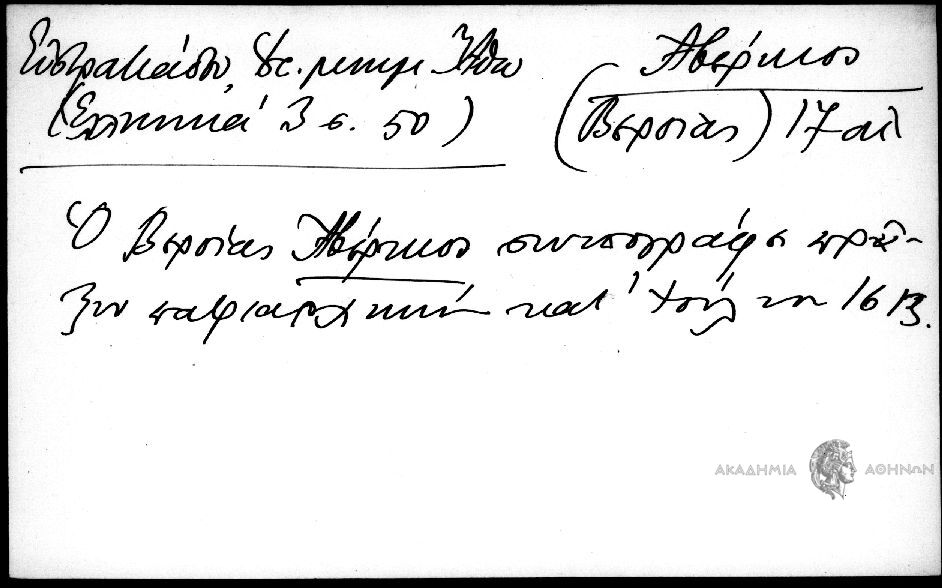 Εὐστρατιάδου, Ἱστ. μνημ. Ἄθω
(Ἑλληνικά 3 σ. 50)
Ἀβέρκιος
(Βεροίας) 17 αἰ
Ὁ Βεροίας Ἀβέρκιος συνυπογράφει πρᾶ-
ξιν πατριαρχικήν κατ' Ἰούλιον 1613.
ΑΚΑΔΗΜΙΑ ΑΘΗΝΩΝ